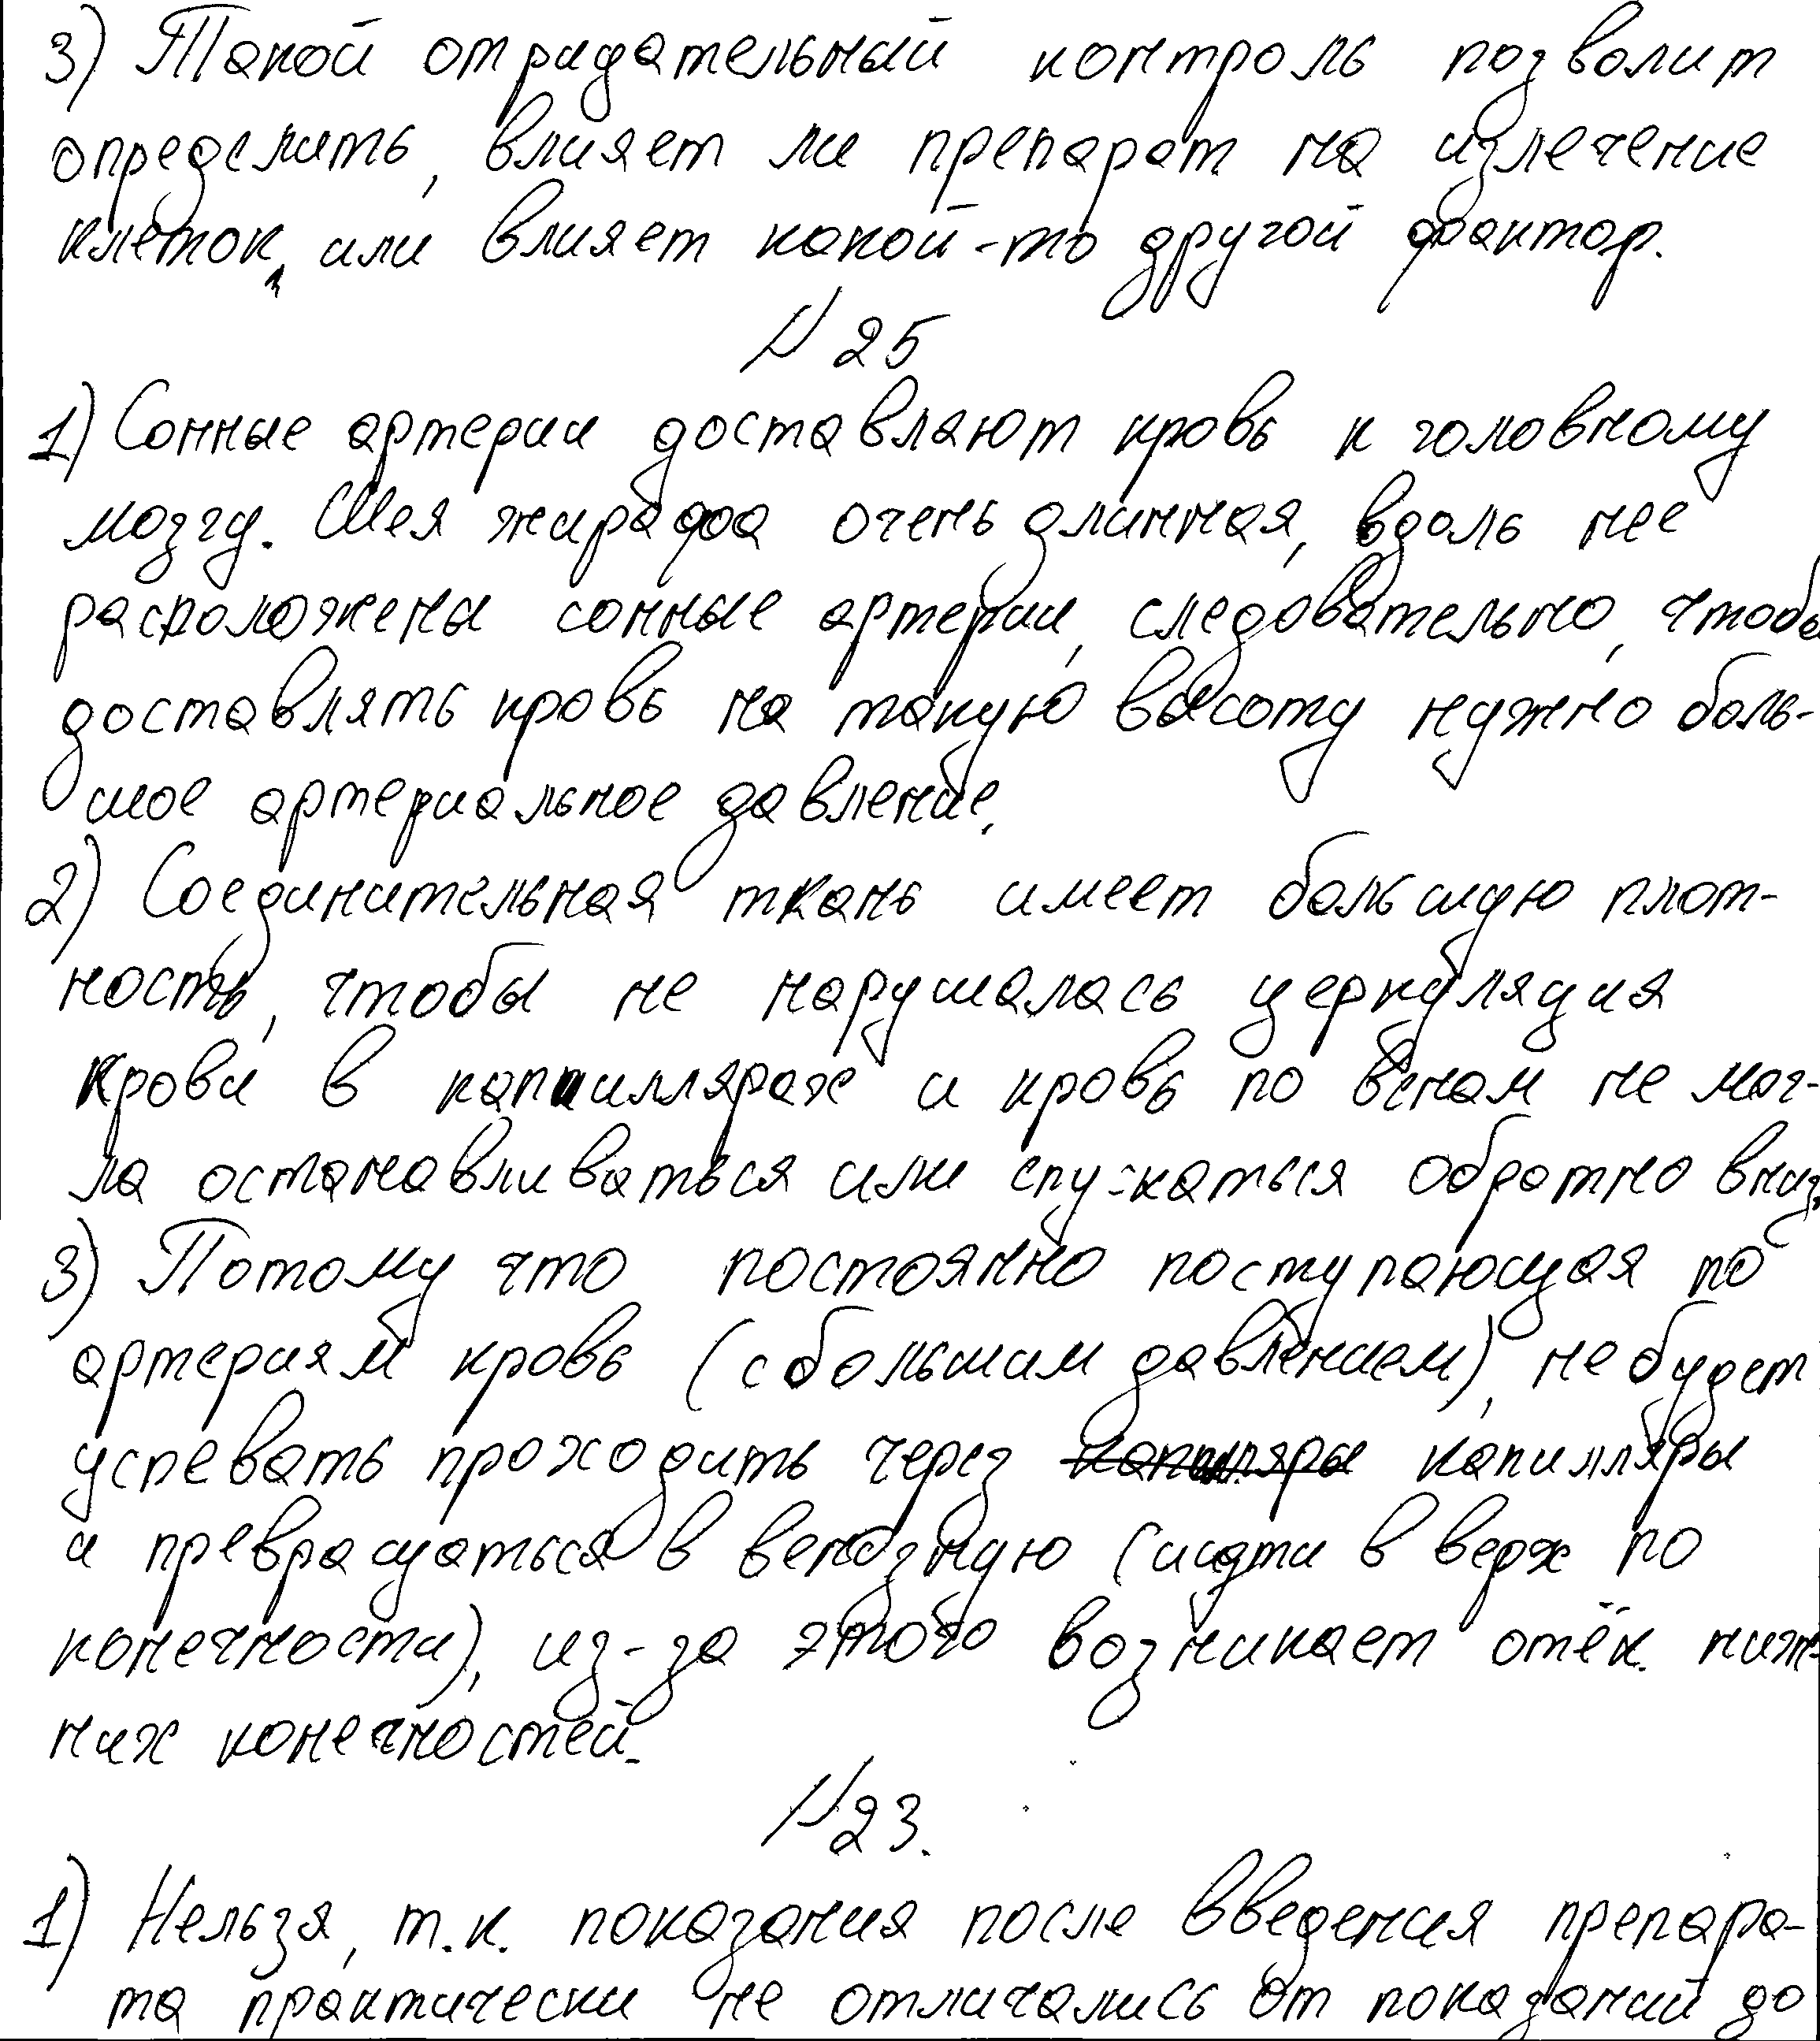 3) Такой отридательный контроль позволит
определить, влияет ли препарат на излечение
клеток, или влияет какой-то другой фактор.
№ 25
1) Сонные артерии доставляют кровь к головному
мозгу. Шея жирафа очень длинная, вдоль нее
расположены сонные артерии, следовательно, чтобы
доставлять кровь на такую высоту нужно боль-
шое артериальное давление.
2) Соединительная ткань имеет большую плот-
ность, чтобы не нарушалась церкуляция
крови в капилярах и кровь по венам не мог-
ла останавливаться или спускаться обратно вниз.
3) Потому что постоянно поступающая по
артериям кровь (с большим давлением), не будет
успевать проходить через капилляры
и превращаться в венозную (и идти в верх по
конечности), из-за этого возникает отёк ниж-
них конечностей.
№23.
1) Нельзя, т.к. показания после введения препара-
та практически не отличались от показаний до